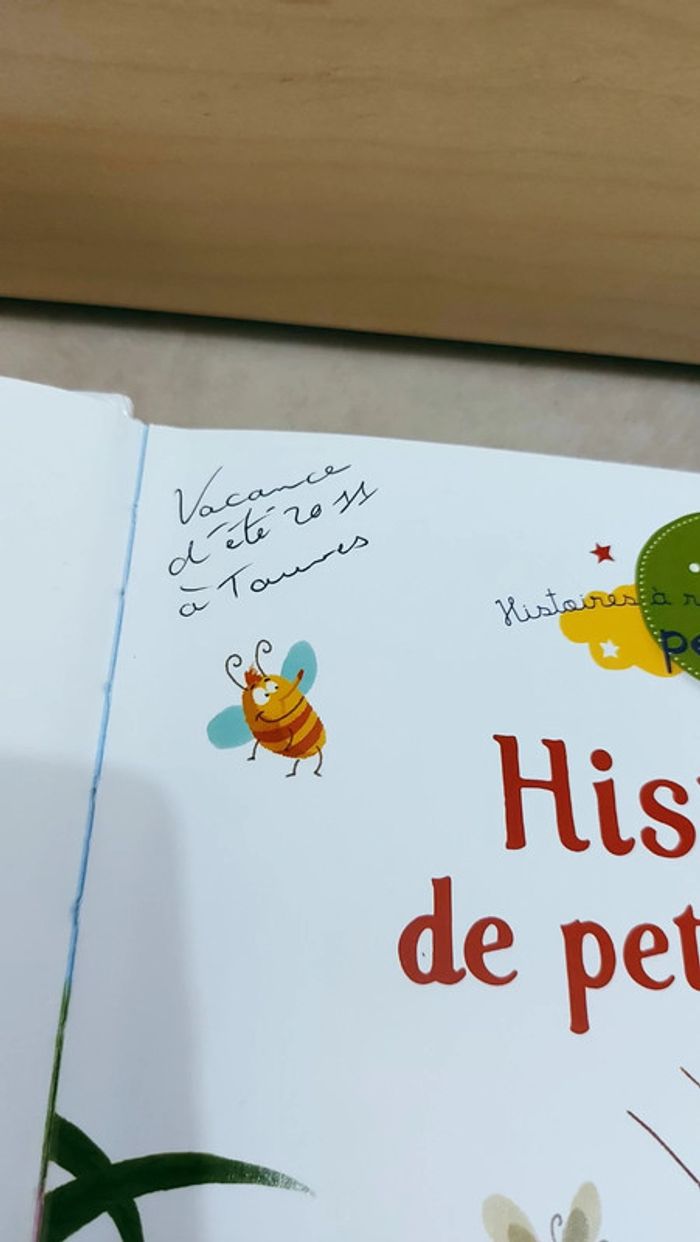 Vacance
d'été 2011
à Tauves
Histoires à r
pe
His
de pet